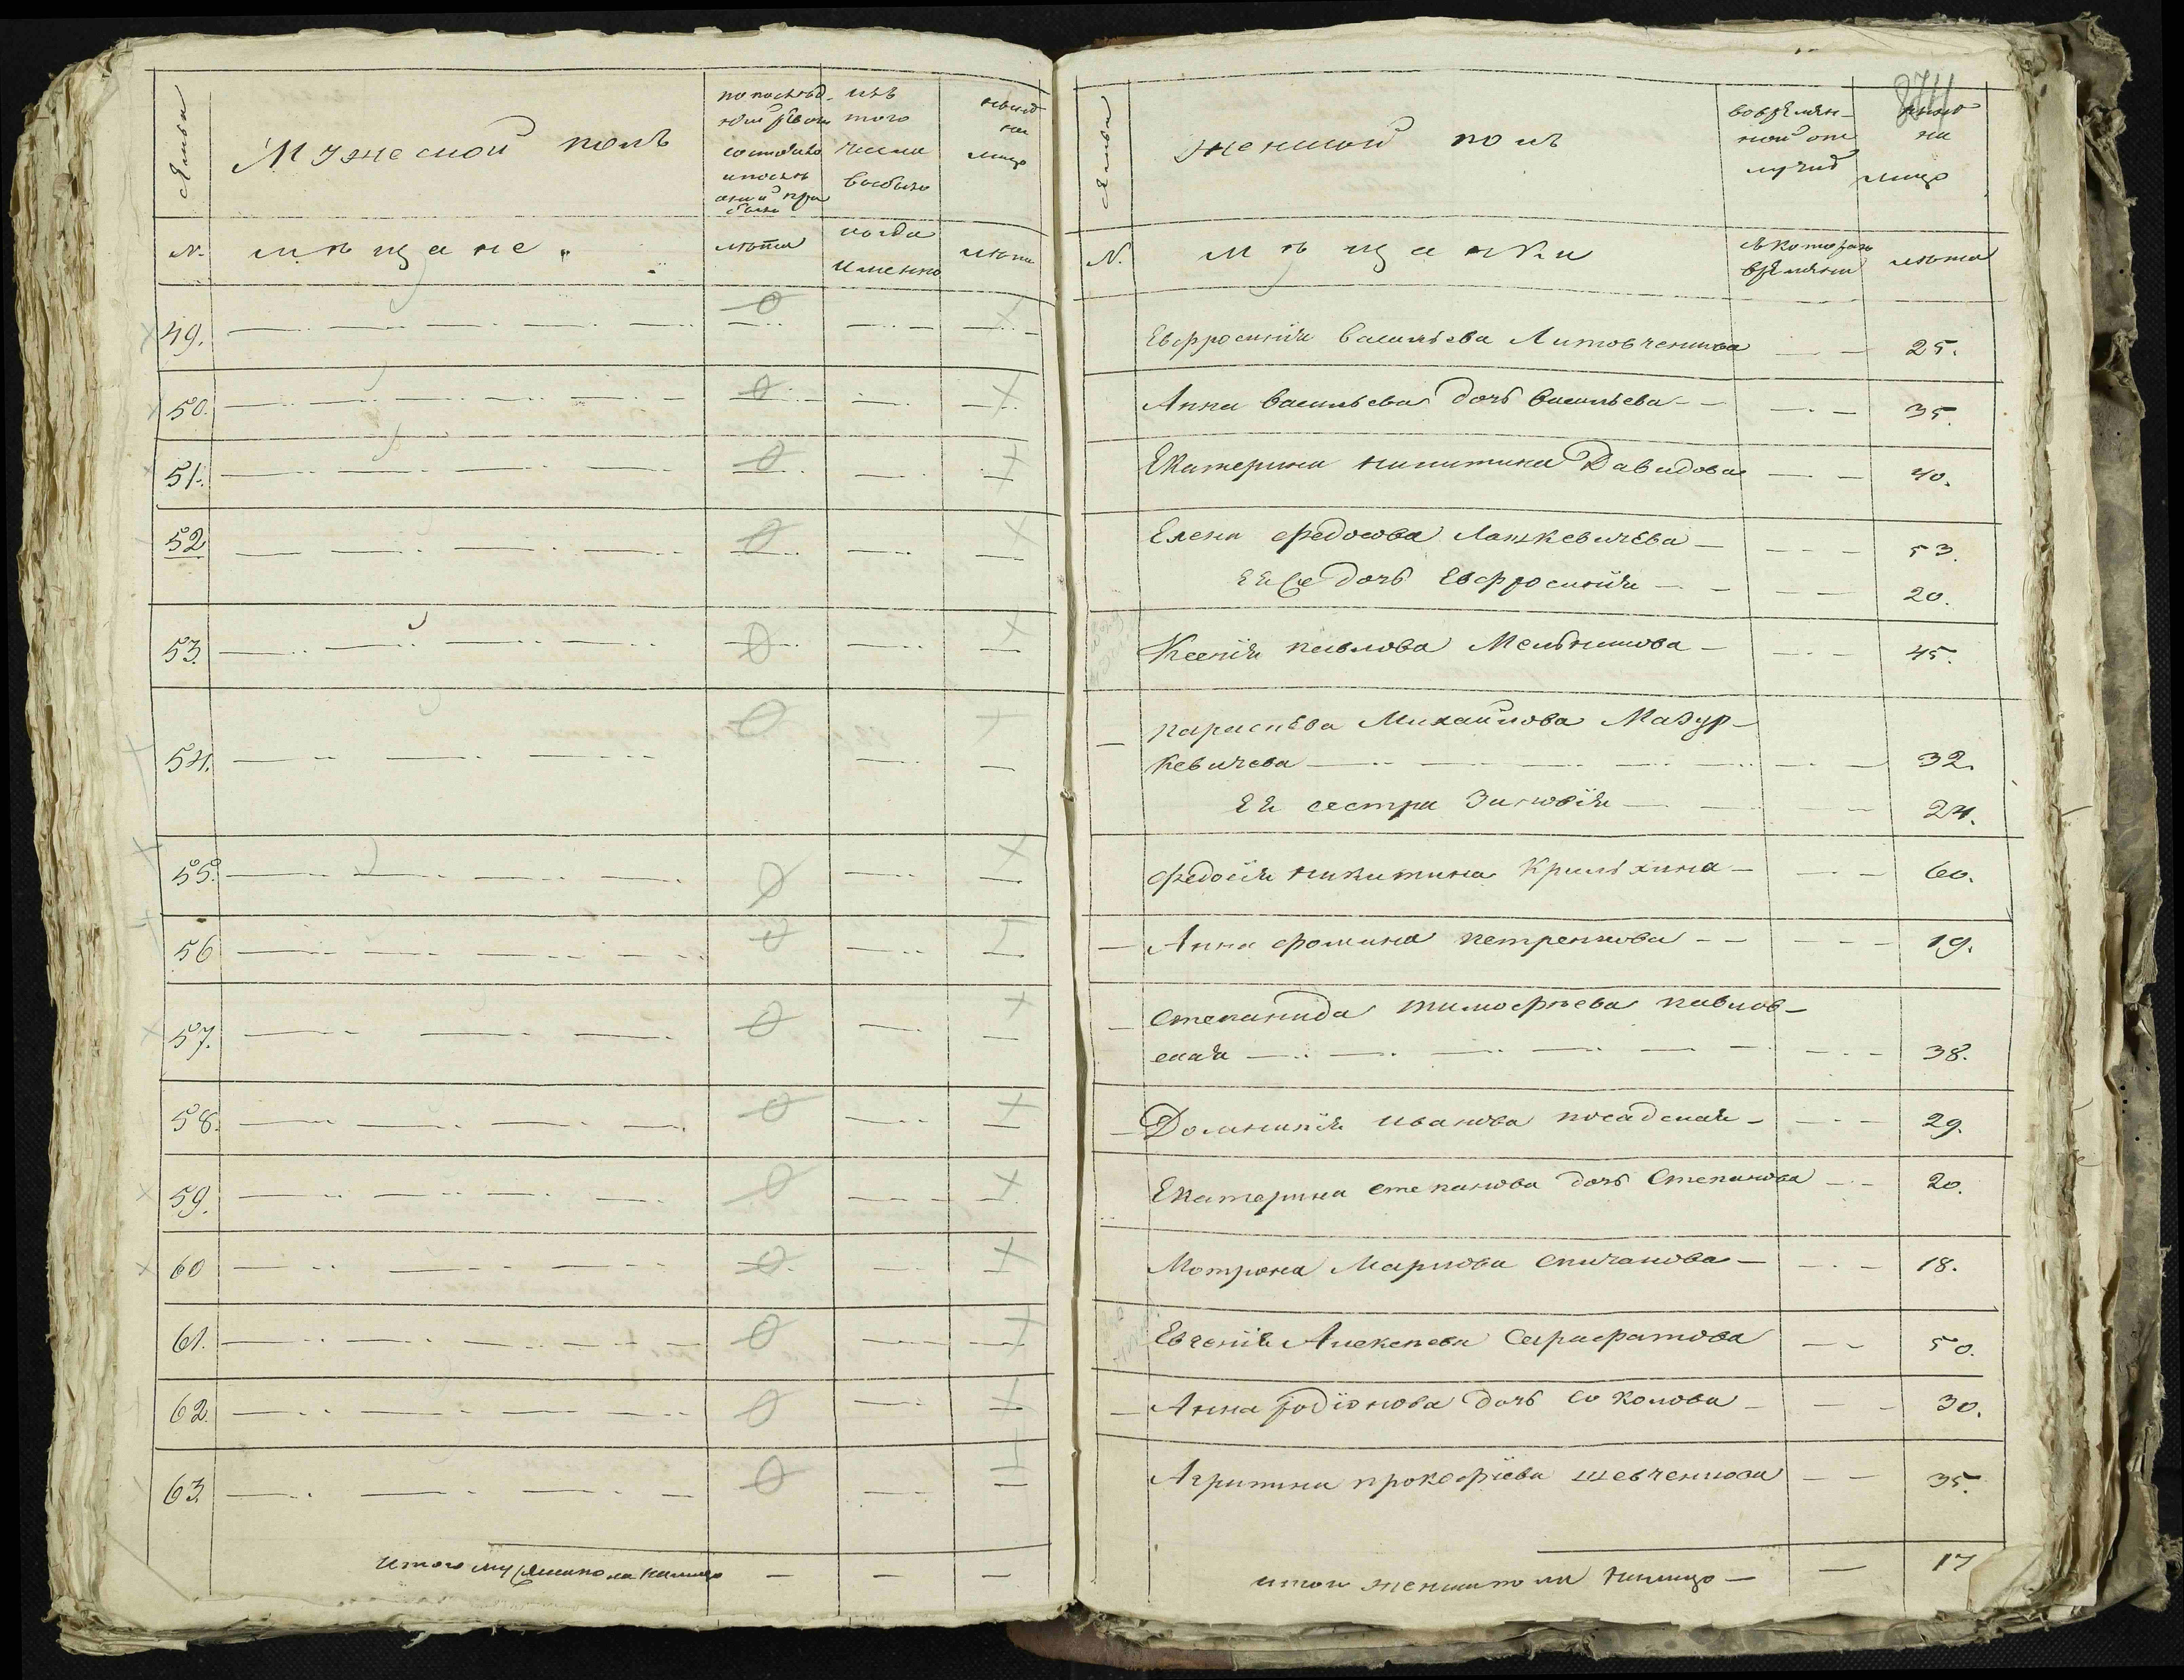 Мужеской полъ
по послѣд-
ней ревизіи
состояло
и послѣ
оной при
было
изъ
того
числа
выбыло
нынѣ
на
лицо
№
мѣщане.
лѣта
когда
именно
лѣта
49.
50.
51.
52
53.
54.
55.
56
57.
58.
59.
60
61.
62.
63.
Итого мужеска пола на лицо — — —
женской полъ
во времян-
ной от
лучкѣ
нынѣ
на
лицо
№.
мѣщанки
съ котораго
времяни
лѣта
Евфросинія Васильева Литовченкова — — 25.
Анна Васильева дочь Васильева — — 35.
Екатерина Никитина Давидова — — 40.
Елена Федосова Лашкевичева — — 53.
Ея дочь Евфросинія — — 20.
Ксенія Павлова Мельникова — — 45.
Параскѣва Михайлова Мазур-
кевичева — — 32.
Ея сестра Зиновія — — 24.
Федосія Никитина Крилькина — — 60.
Анна Фомина Петренкова — — 19.
Степанида Тимофѣева Павлов-
ская — — 38.
Домникія Иванова Посадская — — 29.
Екатерина Степанова дочь Степанова — — 20.
Мотрона Маркова Спичакова — — 18.
Евгенія Алексѣева Сарафатова — — 50.
Анна Родіонова дочь Соколова — — 30.
Агрипина Прокофіева Шевченкова — — 35.
итого женска пола налицо — — 17